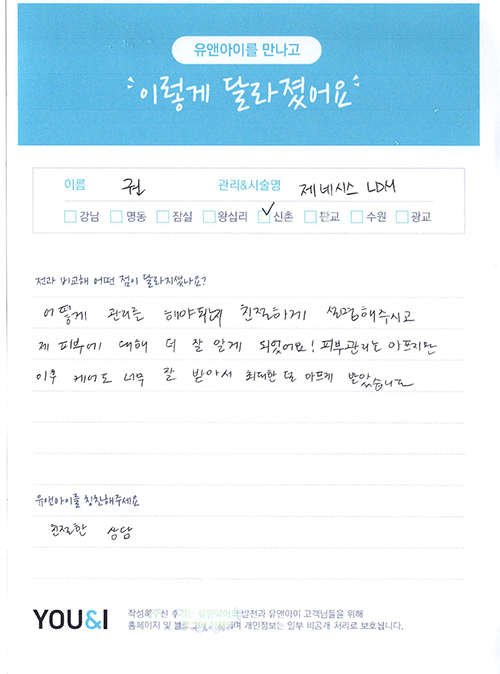 유앤아이를 만나고
이렇게 달라졌어요
이름 권 관리&시술명 제네시스 LDM
강남 명동 잠실 왕십리 신촌 판교 수원 광교
전과 비교해 어떤 점이 달라지셨나요?
어떻게 관리를 해야되는지 친절하게 설명해주시고
제 피부에 대해 더 잘 알게 되었어요! 피부관리는 아프지만
이후 케어도 너무 잘 받아서 최대한 덜 아프게 받았습니다
유앤아이를 칭찬해주세요
친절한 상담
YOU&I 작성해주신 후기는 유앤아이의 발전과 유앤아이 고객님들을 위해
홈페이지 및 블로그에 기재되며 개인정보는 일부 비공개 처리로 보호됩니다.